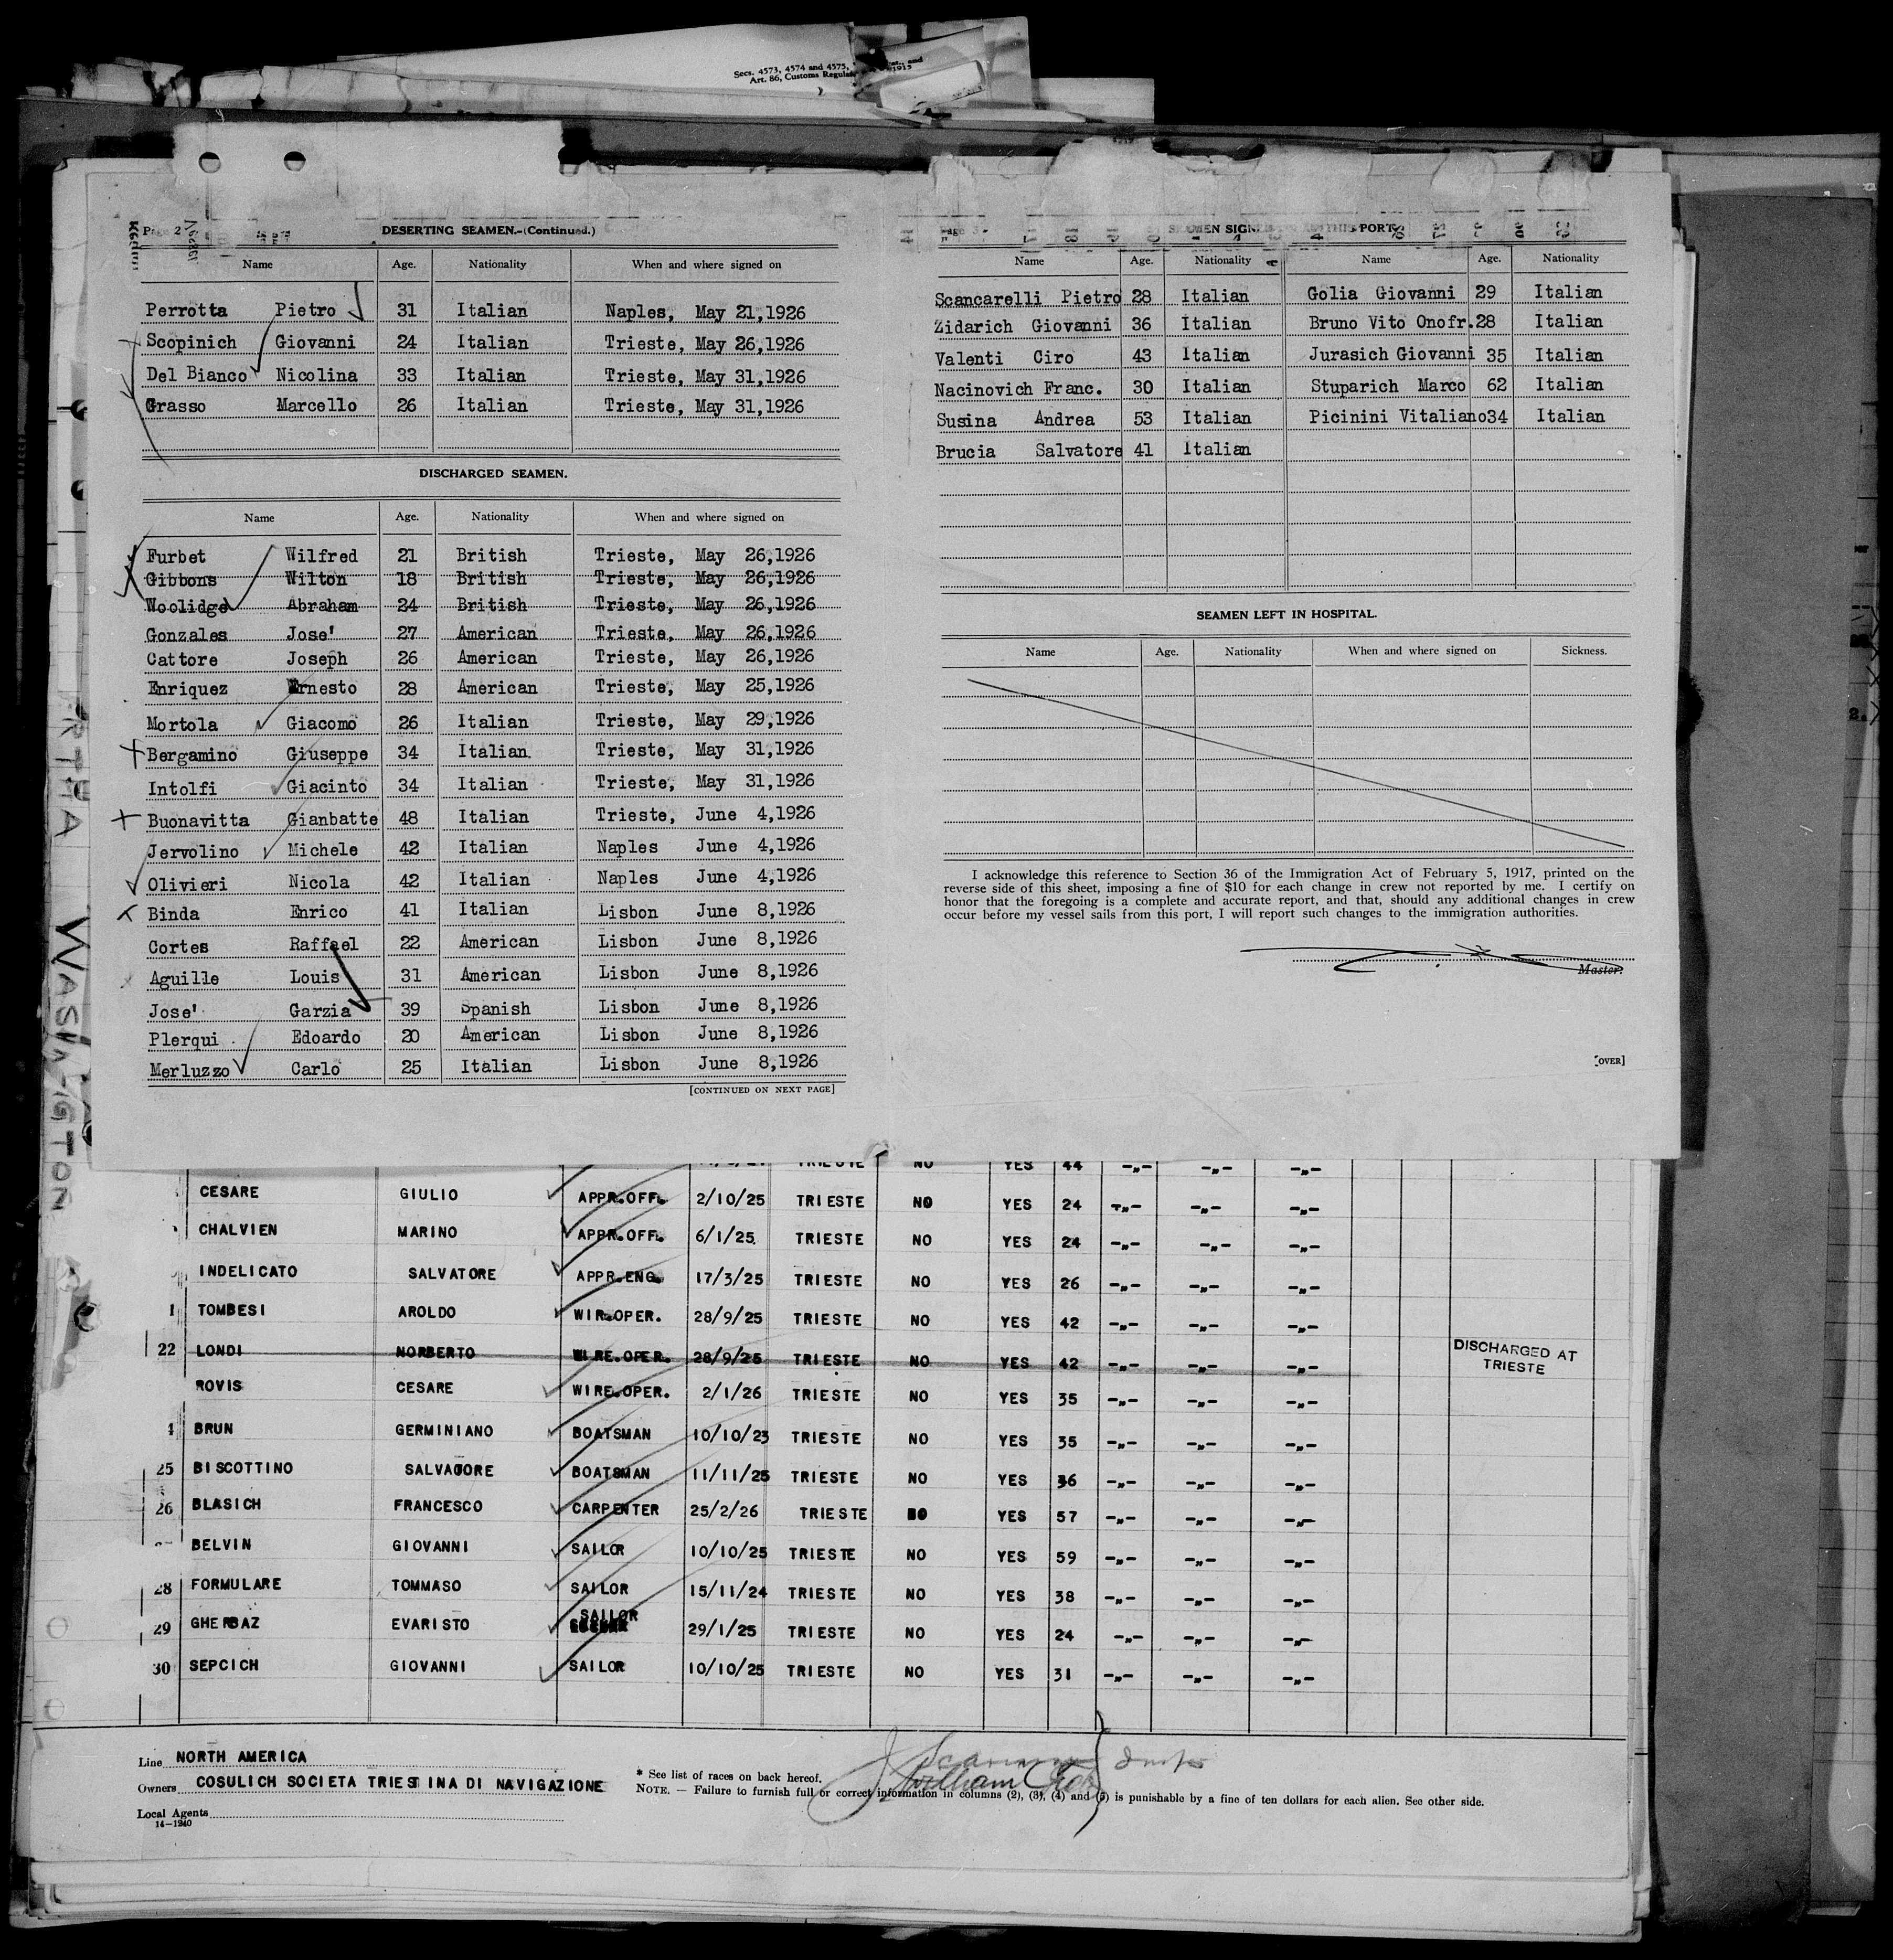 Secs. 4573, 4574 and 4575,
Art. 86, Customs
1915
Page 2
DESERTING SEAMEN.-(Continued.)
Name Age. Nationality When and where signed on
Perrotta Pietro 31 Italian Naples, May 21,1926
Scopinich Giovanni 24 Italian Trieste, May 26,1926
Del Bianco Nicolina 33 Italian Trieste, May 31,1926
Grasso Marcello 26 Italian Trieste, May 31,1926
DISCHARGED SEAMEN.
Name Age. Nationality When and where signed on
Furbet Wilfred 21 British Trieste, May 26,1926
Gibbons Wilton 18 British Trieste, May 26,1926
Woolidge Abraham 24 British Trieste, May 26,1926
Gonzales Jose' 27 American Trieste, May 26,1926
Cattore Joseph 26 American Trieste, May 26,1926
Enriquez Ernesto 28 American Trieste, May 25,1926
Mortola Giacomo 26 Italian Trieste, May 29,1926
Bergamino Giuseppe 34 Italian. Trieste, May 31,1926
Intolfi Giacinto 34 Italian Trieste, May 31,1926
Buonavitta Gianbatte 48 Italian Trieste, June 4,1926
Jervolino Michele 42 Italian Naples June 4,1926
Olivieri Nicola 42 Italian Naples June 4,1926
Binda Enrico 41 Italian Lisbon June 8,1926
Cortes Raffael 22 American Lisbon June 8,1926
Aguille Louis 31 American Lisbon June 8,1926
Jose' Garzia 39 Spanish Lisbon June 8,1926
Plerqui Edoardo 20 American Lisbon June 8,1926
Merluzzo Carlo 25 Italian Lisbon June 8,1926
[CONTINUED ON NEXT PAGE]
Page 3
SEAMEN SIGNED ON THIS PORT
Name Age. Nationality Name Age. Nationality
Scancarelli Pietro 28 Italian Golia Giovanni 29 Italian
Zidarich Giovanni 36 Italian Bruno Vito Onofr. 28 Italian
Valenti Ciro 43 Italian Jurasich Giovanni 35 Italian
Nacinovich Franc. 30 Italian Stuparich Marco 62 Italian
Susina Andrea 53 Italian Picinini Vitaliano 34 Italian
Brucia Salvatore 41 Italian
SEAMEN LEFT IN HOSPITAL.
Name Age. Nationality When and where signed on Sickness.
I acknowledge this reference to Section 36 of the Immigration Act of February 5, 1917, printed on the
reverse side of this sheet, imposing a fine of $10 for each change in crew not reported by me. I certify on
honor that the foregoing is a complete and accurate report, and that, should any additional changes in crew
occur before my vessel sails from this port, I will report such changes to the immigration authorities.
Master.
[OVER]
WASHINGTON
TRIESTE NO YES 44 -"- -"- -"-
CESARE GIULIO APPR.OFF. 2/10/25 TRIESTE NO YES 24 -"- -"- -"-
CHALVIEN MARINO APPR.OFF. 6/1/25. TRIESTE NO YES 24 -"- -"- -"-
INDELICATO SALVATORE APPR.ENG. 17/3/25 TRIESTE NO YES 26 -"- -"- -"-
1 TOMBESI AROLDO WIR.OPER. 28/9/25 TRIESTE NO YES 42 -"- -"- -"-
22 LONDI NORBERTO WIRE.OPER. 28/9/25 TRIESTE NO YES 42 -"- -"- -"- DISCHARGED AT
TRIESTE
ROVIS CESARE WIRE.OPER. 2/1/26 TRIESTE NO YES 35 -"- -"- -"-
4 BRUN GERMINIANO BOATSMAN 10/10/23 TRIESTE NO YES 35 -"- -"- -"-
25 BISCOTTINO SALVATORE BOATSMAN 11/11/25 TRIESTE NO YES 36 -"- -"- -"-
26 BLASICH FRANCESCO CARPENTER 25/2/26 TRIESTE NO YES 57 -"- -"- -"-
BELVIN GIOVANNI SAILOR 10/10/25 TRIESTE NO YES 59 -"- -"- -"-
28 FORMULARE TOMMASO SAILOR 15/11/24 TRIESTE NO YES 38 -"- -"- -"-
29 GHERBAZ EVARISTO SAILOR 29/1/25 TRIESTE NO YES 24 -"- -"- -"-
30 SEPCICH GIOVANNI SAILOR 10/10/25 TRIESTE NO YES 31 -"- -"- -"-
Line NORTH AMERICA
Owners COSULICH SOCIETA TRIESTINA DI NAVIGAZIONE
Local Agents
14-1240
* See list of races on back hereof.
William
NOTE. — Failure to furnish full or correct information in columns (2), (3), (4) and (5) is punishable by a fine of ten dollars for each alien. See other side.